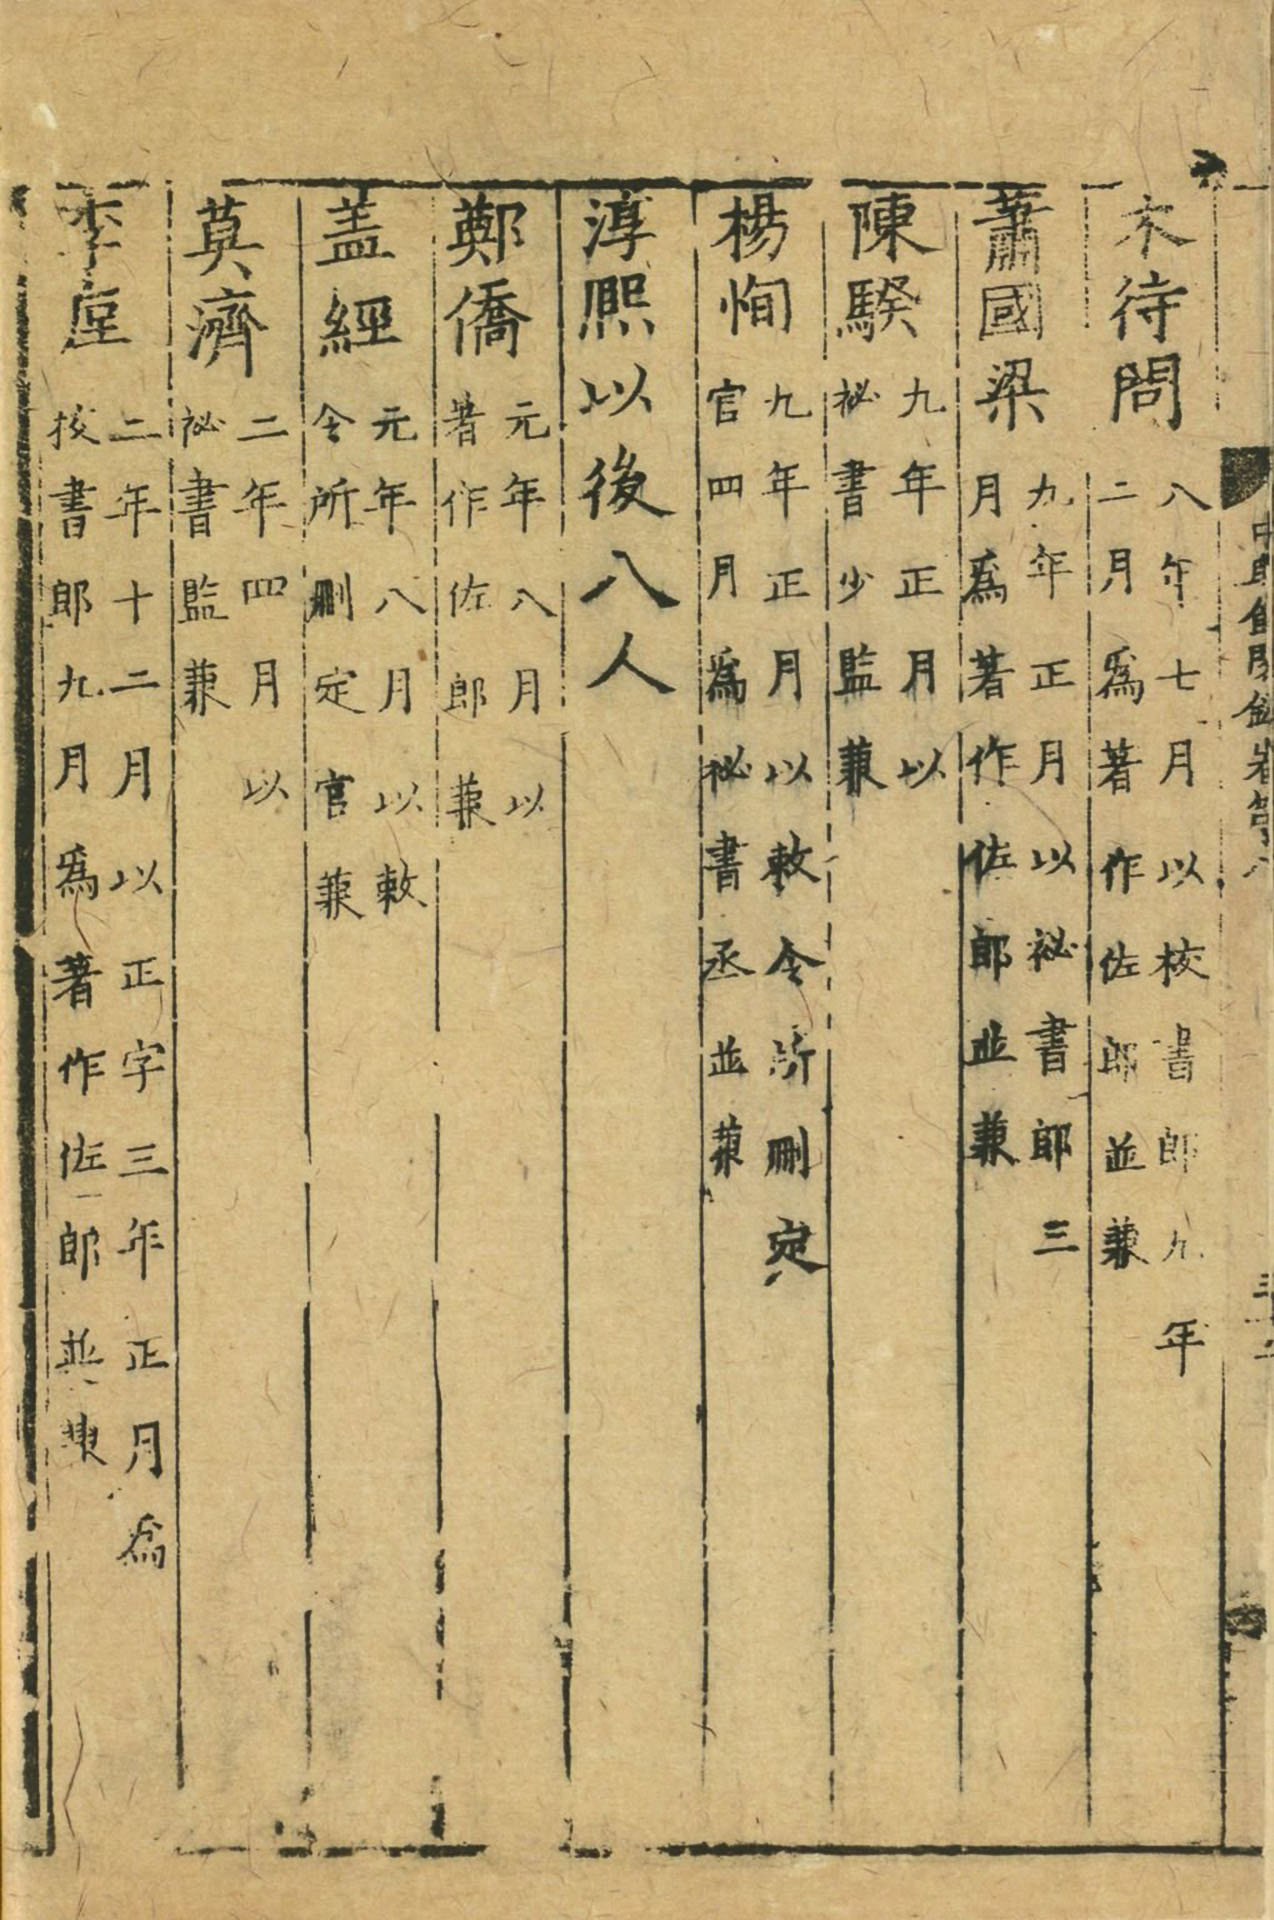 木待問 八年七月以校書郎九年
二月爲著作佐郎並兼
蕭國梁 九年正月以祕書郎三
月爲著作佐郎並兼
陳騤 九年正月以
祕書少監兼
楊恂 九年正月以敕令所刪定
官四月爲祕書丞並兼
淳熙以後八人
鄭僑 元年八月以
著作佐郎兼
盖經 元年八月以敕
令所刪定官兼
莫濟 二年四月以
祕書監兼
李垕 二年十二月以正字三年正月爲
校書郎九月爲著作佐郎並兼